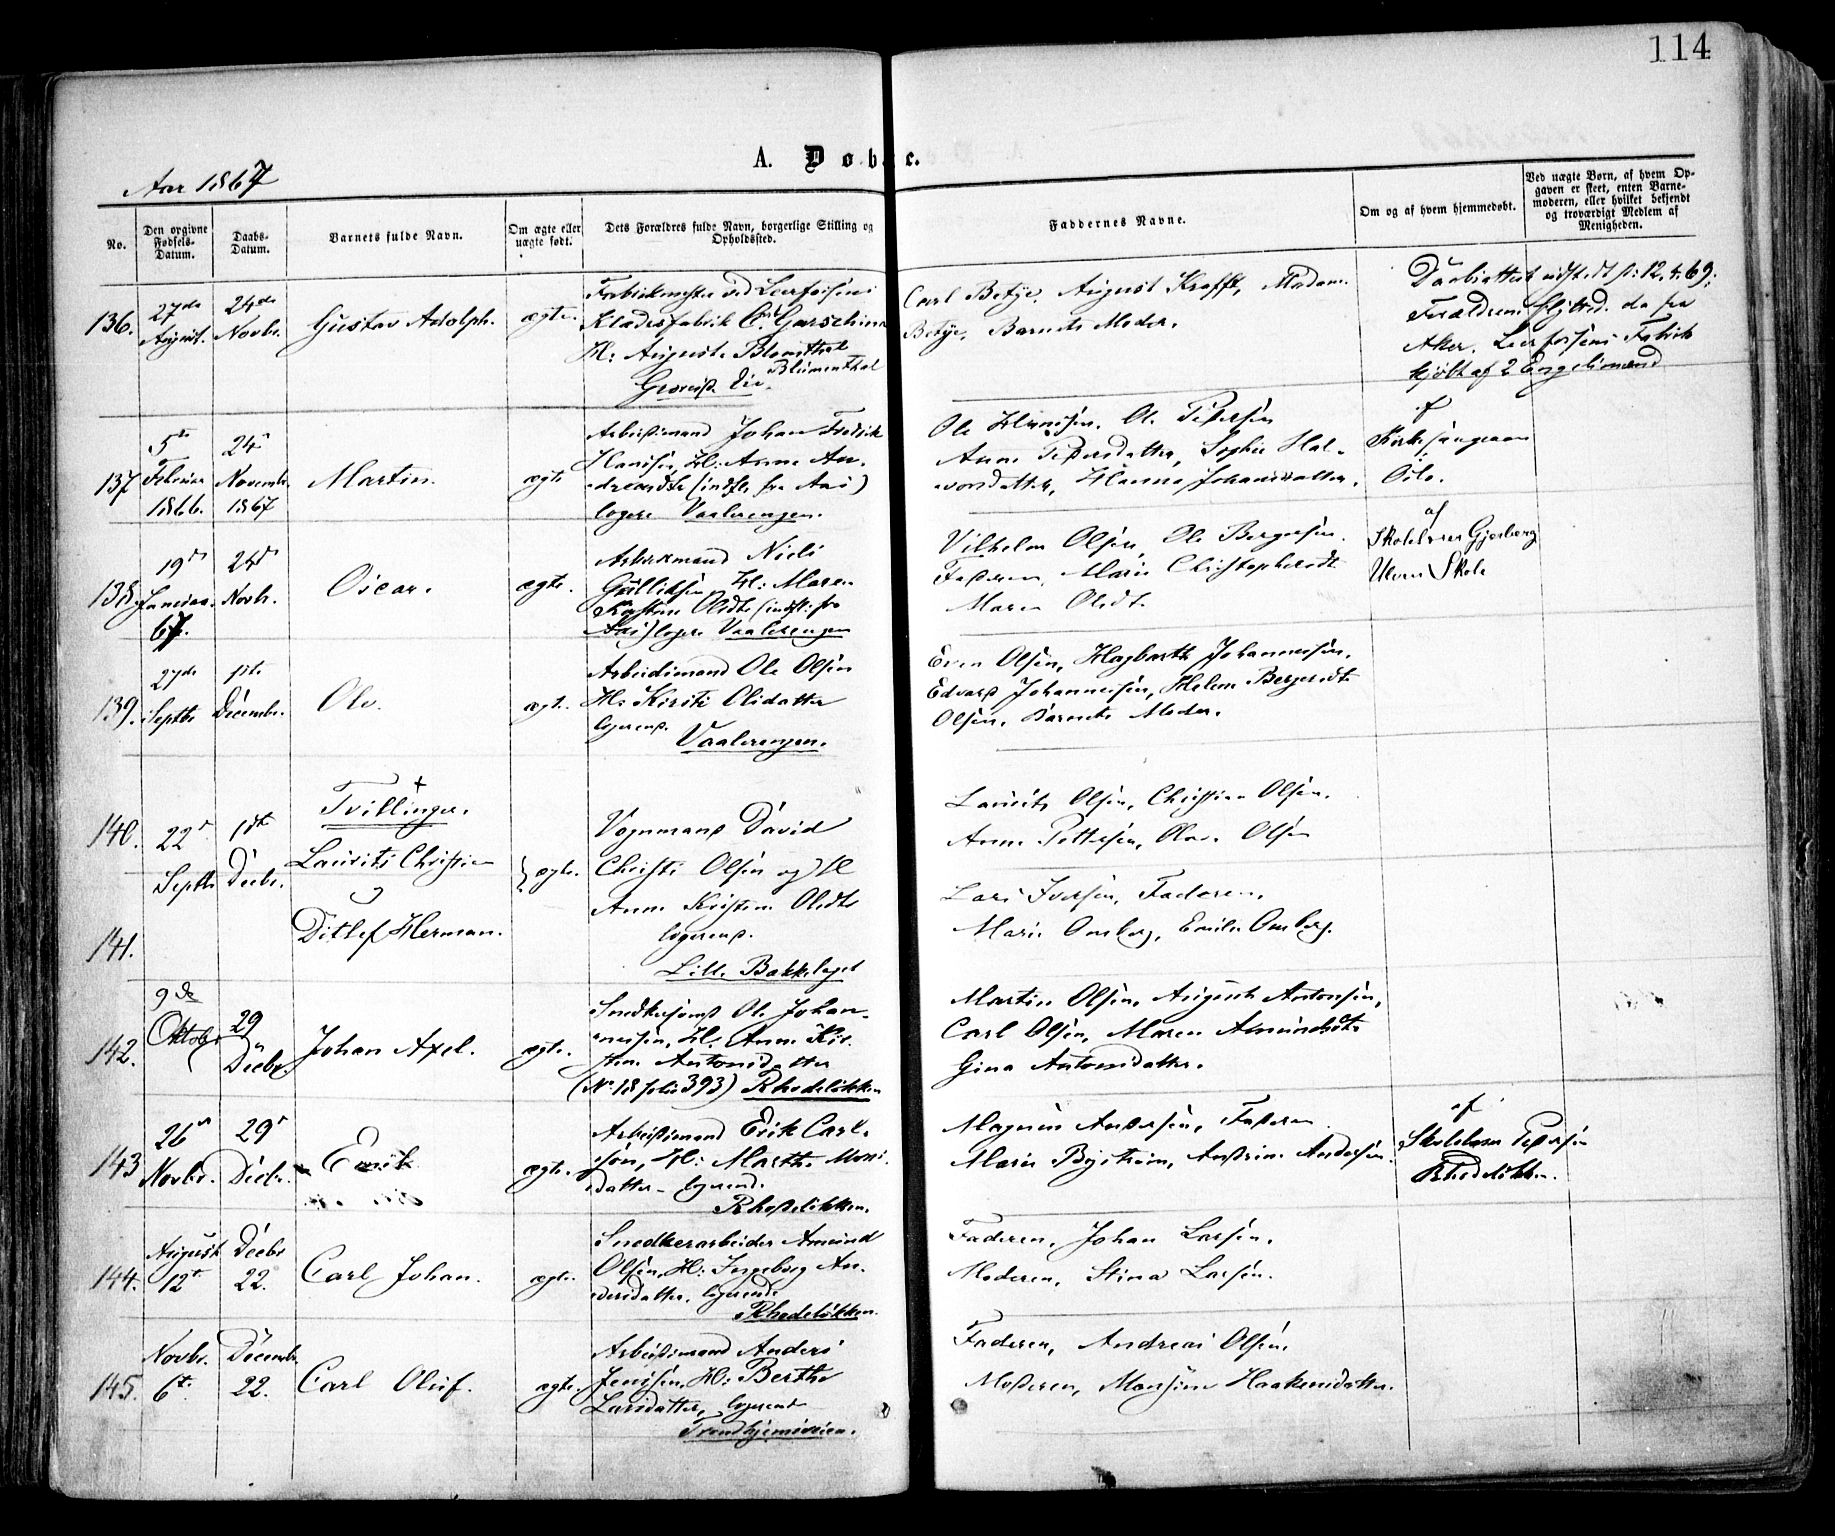 114
A. Døbte.
Aar 1867
No.
Den opgivne Fødsels-Datum.
Daabs-Datum.
Barnets fulde Navn.
Om ægte eller uægte født.
Dets Forældres fulde Navn, borgerlige Stilling og Opholdssted.
Faddernes Navne.
Om og af hvem hjemmedøbt.
Ved uægte Børn, af hvem Opgaven er skeet, enten Barnemoderen, eller hvilket bekjendt og troværdigt Medlem af Menigheden.
136.
27de August.
24de Novbr.
Gustav Adolph.
ægte
Fabrikmester ved Leerfossens
Klædesfabrik C. Garschina
H: Auguste Blomsthal
Blumenthal
Carl Betze, August Krafft, Madam
Betze, Barnets Moder.
Daabsattest udstedt d: 12.4.69;
Forældrene flytted. da fra
Aker. Leerfossens Fabrik
kjøbt af 2 Engelsmænd
137
5te Februar 1866.
24de Novembr. 1867
Martin.
ægte
Arbeidsmand Johan Fredrik
Hansen, H: Anne An-
dreasdtr (indfl. fra Aas)
logere Vaalerengen.
Ole Hansen, Ole Pedersen
Anne Pedersdatter, Sophie Hal-
vorsdatter, Hanna Johannsdatter.
af
Kirkesanger
Oslo.
138.
19de Januar 67.
24de Novbr.
Oscar.
ægte.
Arbeidsmand Niels
Gulliksen H: Maren
Kirstine Olsdtr (indfl: fra
Aas) logere Vaalerengen
Vilhelm Olsen, Ole Bergersen.
Faderen, Marie Christophersdtr
Maren Olsdtr.
af
Skolelærer Gjerberg
Ulven Skole
139.
27de Septbr
1ste Decembr.
Ole.
ægte.
Arbeidsmand Ole Olsen
H: Kirsti Olsdatter
logerend.
Vaalerengen.
Even Olsen, Hagbarth Johannesen,
Edvard Johannesen, Helene Bergersdtr
Olsen, Barnets Moder.
140.
22de Septbr
1ste Decbr.
Tvillinger.
Laurits Christian
ægte.
Vognmand David
Christi Olsen og H
Anne Kristine Olsdtr
logerend.
Lille Bakkelaget
Laurits Olsen, Christian Olsen.
Anne Pettersen, Olava Olsen
141.
Ditlef Herman.
Lars Iversen, Faderen,
Marie Omberg, Emilie Omberg.
142.
9de Oktobr
29 Decbr.
Johan Axel.
ægte.
Snedkersvend Ole Johan-
nesen, H: Anne Kir-
stine Antonsdatter
(No 18 folio 393) Rhodeløkken
Martin Olsen, August Antonsen,
Carl Olsen, Maren Amundsdtr
Gina Antonsdatter.
143
26de Novbr.
29de Decbr.
Erik
ægte.
Arbeidsmand Erik Carl-
søn, H: Marthe Mons-
datter - logerend.
Rhodeløkken.
Magnus Andersen, Faderen
Marie Bystrøm, Andrine Andersen.
af
Skolelærer Pedersen
Rhodeløkken.
144.
August 12te
Decbr 22.
Carl Johan.
ægte.
Snedkerarbeider Amund
Olsen, H: Ingeborg An-
dersdatter, logerende
Rhodeløkken.
Faderen, Johan Larsen,
Moderen, Stina Larsen.
145.
Novbr. 6te
Decembr. 22.
Carl Oluf.
ægte.
Arbeidsmand Anders
Jensen, H: Berthe
Larsdatter, logerend
Trondhjemsveien.
Faderen, Andreas Olsen,
Moderen, Monsine Haakensdatter.